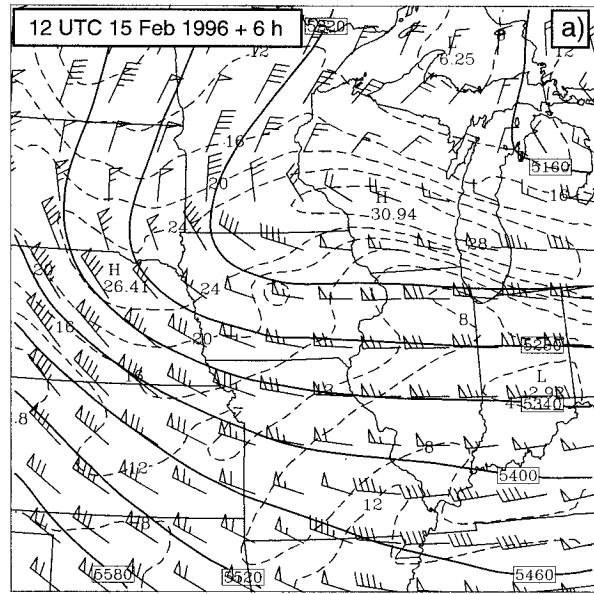 12 UTC 15 Feb 1996 + 6 h
a)
5220
12
L
6.25
12
16
5160
20
16
H
30.94
24
28
20
H
26.41
24
8
16
20
5280
L
2.98
16
5340
4
.8
8
12
5400
12
8
5580
5520
5460